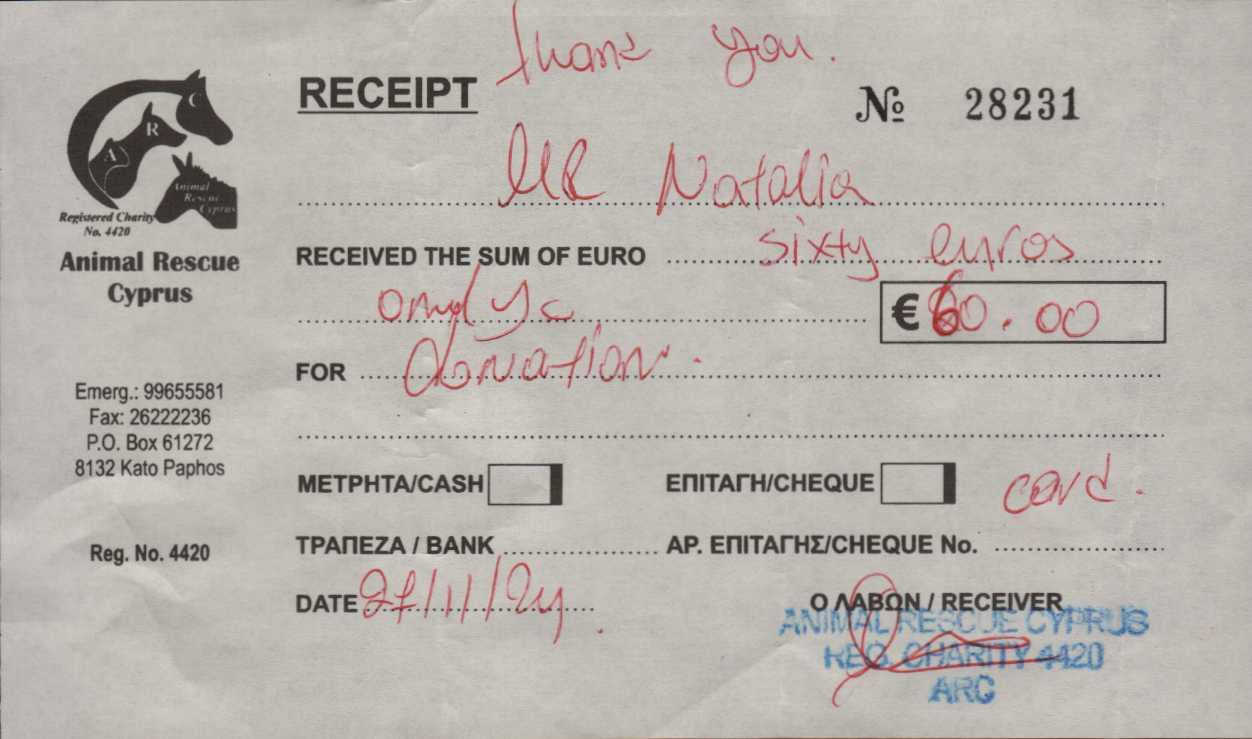 Thank you.
RECEIPT
№ 28231
A R C
Animal
Rescue
Cyprus
Registered Charity
No. 4420
Animal Rescue
Cyprus
Natalia
RECEIVED THE SUM OF EURO sixty euros
€ 60.00
FOR donation.
Emerg.: 99655581
Fax: 26222236
P.O. Box 61272
8132 Kato Paphos
ΜΕΤΡΗΤΑ/CASH ΕΠΙΤΑΓΗ/CHEQUE card.
Reg. No. 4420
ΤΡΑΠΕΖΑ / BANK ΑΡ. ΕΠΙΤΑΓΗΣ/CHEQUE No.
DATE 27/11/24.
Ο ΛΑΒΩΝ / RECEIVER
ANIMAL RESCUE CYPRUS
REG. CHARITY 4420
ARC